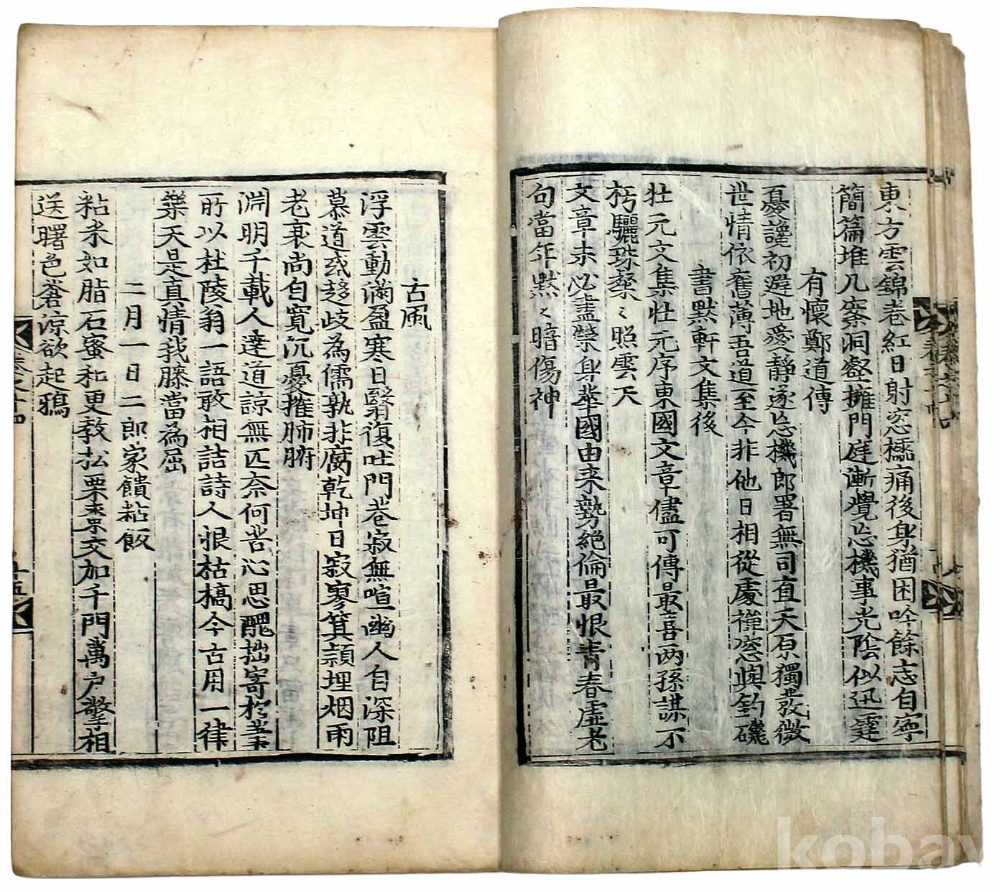 東方雲錦卷紅日射窓櫺痛後身猶困吟餘志自寧
簡篇堆几案洞壑擁門庭漸覺忘機事光陰似迅霆
有懷鄭道傳
憂讒初避地愛靜逐忘機郎署無司直天原獨發微
世情依舊薄吾道至今非他日相從處禪窓與釣磯
書默軒文集後
牡元文集牡元序東國文章儘可傳最喜兩孫謀不
朽驪珠燦〻照雲天
文章未必盡榮身華國由来勢絶倫最恨青春虛老
句當年黙〻暗傷神
古風
浮雲動滿盈寒日翳復吐門巷寂無喧幽人自深阻
慕道或趍歧為儒孰非腐乾坤日寂寥箕潁埋烟雨
老衰尚自寬沉憂摧肺腑
淵明千載人達道諒無匹奈何苦心思醜拙寄於筆
所以杜陵翁一語敢相詰詩人恨枯槁今古用一律
樂天是真情我膝當為屈
二月一日二郎家饋粘飯
粘米如脂石蜜和更教松栗棗交加千門萬户擎相
送曙色蒼涼欲起鴉
卷之十四
十五
kobay